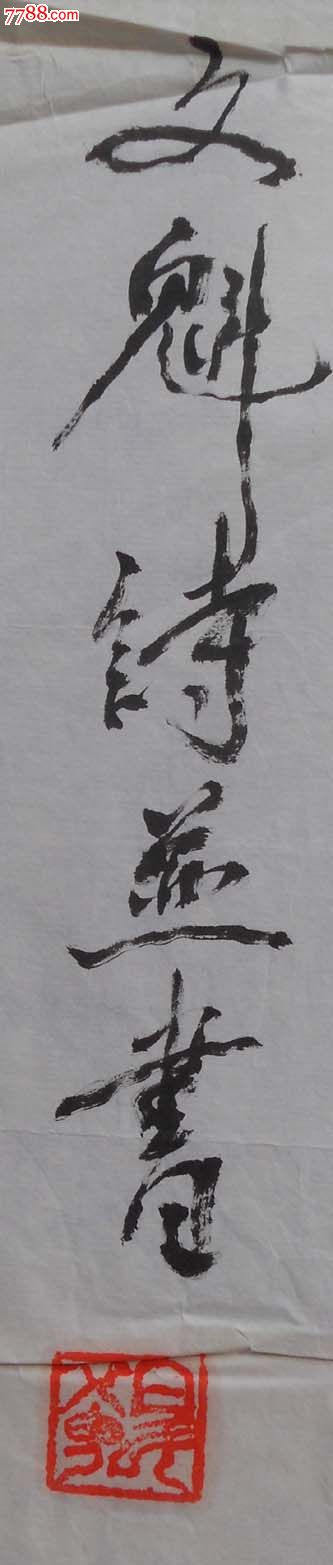 7788.com
文魁詩並書